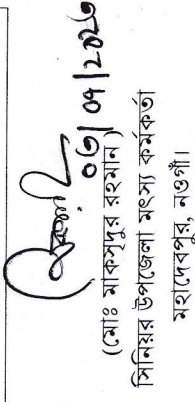 ০৩/০৭/২০২৩
(মোঃ মাকসুদুর রহমান)
সিনিয়র উপজেলা মৎস্য কর্মকর্তা
মহাদেবপুর, নওগাঁ।